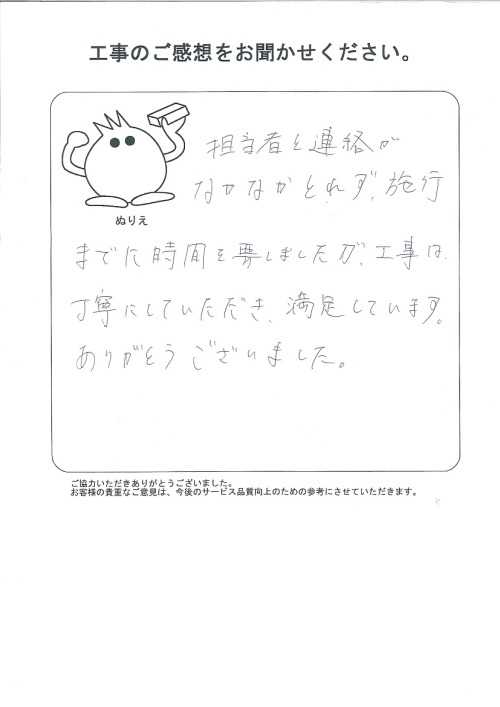 工事のご感想をお聞かせください。
担当者と連絡が
なかなかとれず、施行
ぬりえ
までに時間を要しましたが、工事は
丁寧にしていただき、満足しています。
ありがとうございました。
ご協力いただきありがとうございました。
お客様の貴重なご意見は、今後のサービス品質向上のための参考にさせていただきます。